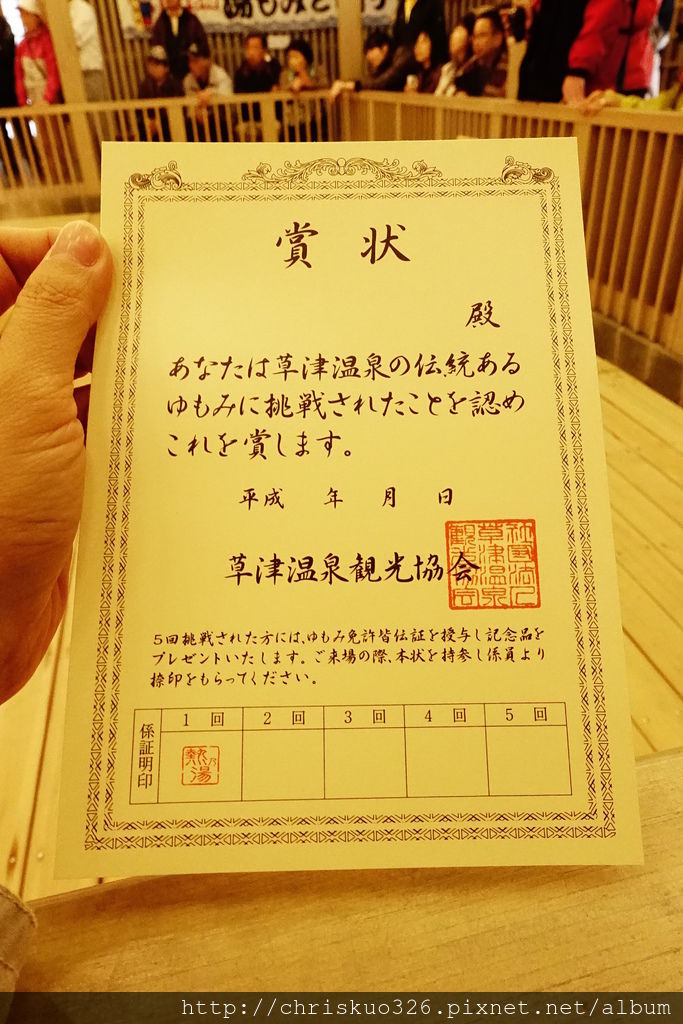 湯もみと
賞 状
殿
あなたは草津温泉の伝統ある
ゆもみに挑戦されたことを認め
これを賞します。
平成 年 月 日
草津温泉観光協会
社団法人
草津温泉
観光協会
5回挑戦された方には、ゆもみ免許皆伝証を授与し記念品を
プレゼントいたします。ご来場の際、本状を持参し係員より
捺印をもらってください。
係証明印 1 回 2 回 3 回 4 回 5 回
熱乃湯
http://chriskuo326.pixnet.net/album